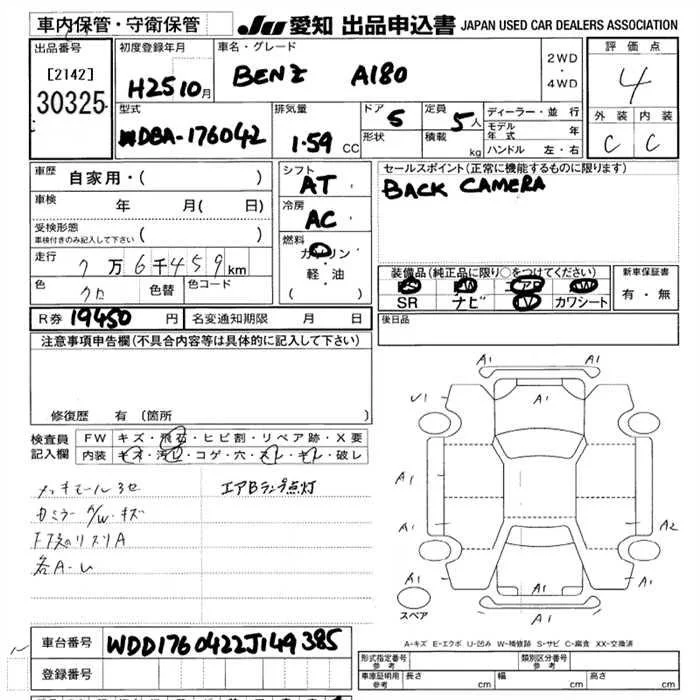 車内保管・守衛保管
JU 愛知 出品申込書 JAPAN USED CAR DEALERS ASSOCIATION
出品番号
[2142]
30325
初度登録年月
H25 10月
車名・グレード
BENZ A180
2WD
・
4WD
評価点
4
外装 内装
C C
型式
DBA-176042
排気量
1.59 CC
ドア 5
形状
定員 5人
積載 kg
ディーラー・並行
モデル年式 年
ハンドル 左・右
車歴 自家用・( )
車検 年 月( 日)
受検形態
車検付きのみ記入して下さい ( )
走行 7万6千459km
色 クロ 色替 色コード
シフト
AT
冷房
AC
燃料
ガソリン
・
軽・油
( )
セールスポイント(正常に機能するものに限ります)
BACK CAMERA
装備品(純正品に限り○をつけてください)
PS PW エアB AW
SR ナビ TV カワシート
新車保証書
有・無
R券 19450 円 名変通知期限 月 日
後日品
注意事項申告欄(不具合内容等は具体的に記入して下さい)
修復歴 有(箇所 )
検査員
記入欄
FW キズ・飛石・ヒビ割・リペア跡・X要
内装 キオ・汚レ・コゲ・穴・スレ・キレ・破レ
エアBランプ点灯
各A-U
A1 A1
U1 A1 A1
A1 A1
A1 A2
A1 A1 A1
A1 A1
スペア
A-キズ E-エクボ U-凹み W-補修跡 S-サビ C-腐食 XX-交換済
車台番号 WDD1760422J149385
登録番号
形式指定番号
参考
類別区分番号
参考
車庫証明用
参考
長さ cm 幅 cm 高さ cm